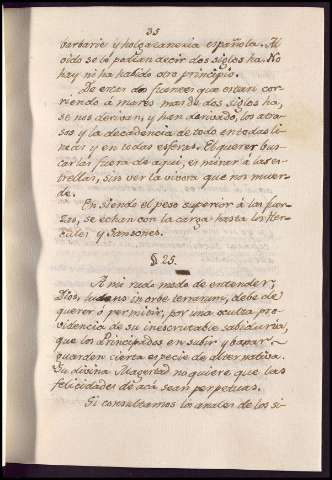 35
barbarie y holgazaneria española. Al
oido se lo podian decir dos siglos ha. No
hay ni ha habido otro principio.
De estas dos fuentes que estan cor-
riendo á mares mas de dos siglos ha,
se nos derivan, y han derivado, los atra-
sos y la decadencia de todo en todas li-
neas y en todas esferas. El querer bus-
carlas fuera de aqui, es mirar á las es-
trellas, sin ver la vivora que nos muer-
de.
En siendo el peso superior á las fuer-
zas, se echan con la carga hasta los Her-
cules y Sansones.
§ 25.
A mi rudo modo de entender;
Dios, ludens in orbe terrarum, debe de
querer ó permitir, por una oculta pro-
videncia de su inescrutable sabiduria,
que los Principados en subir y bajar
guarden cierta especie de alternativa.
Su divina Magestad no quiere que las
felicidades de acá sean perpetuas.
Si consultamos los anales de los si-